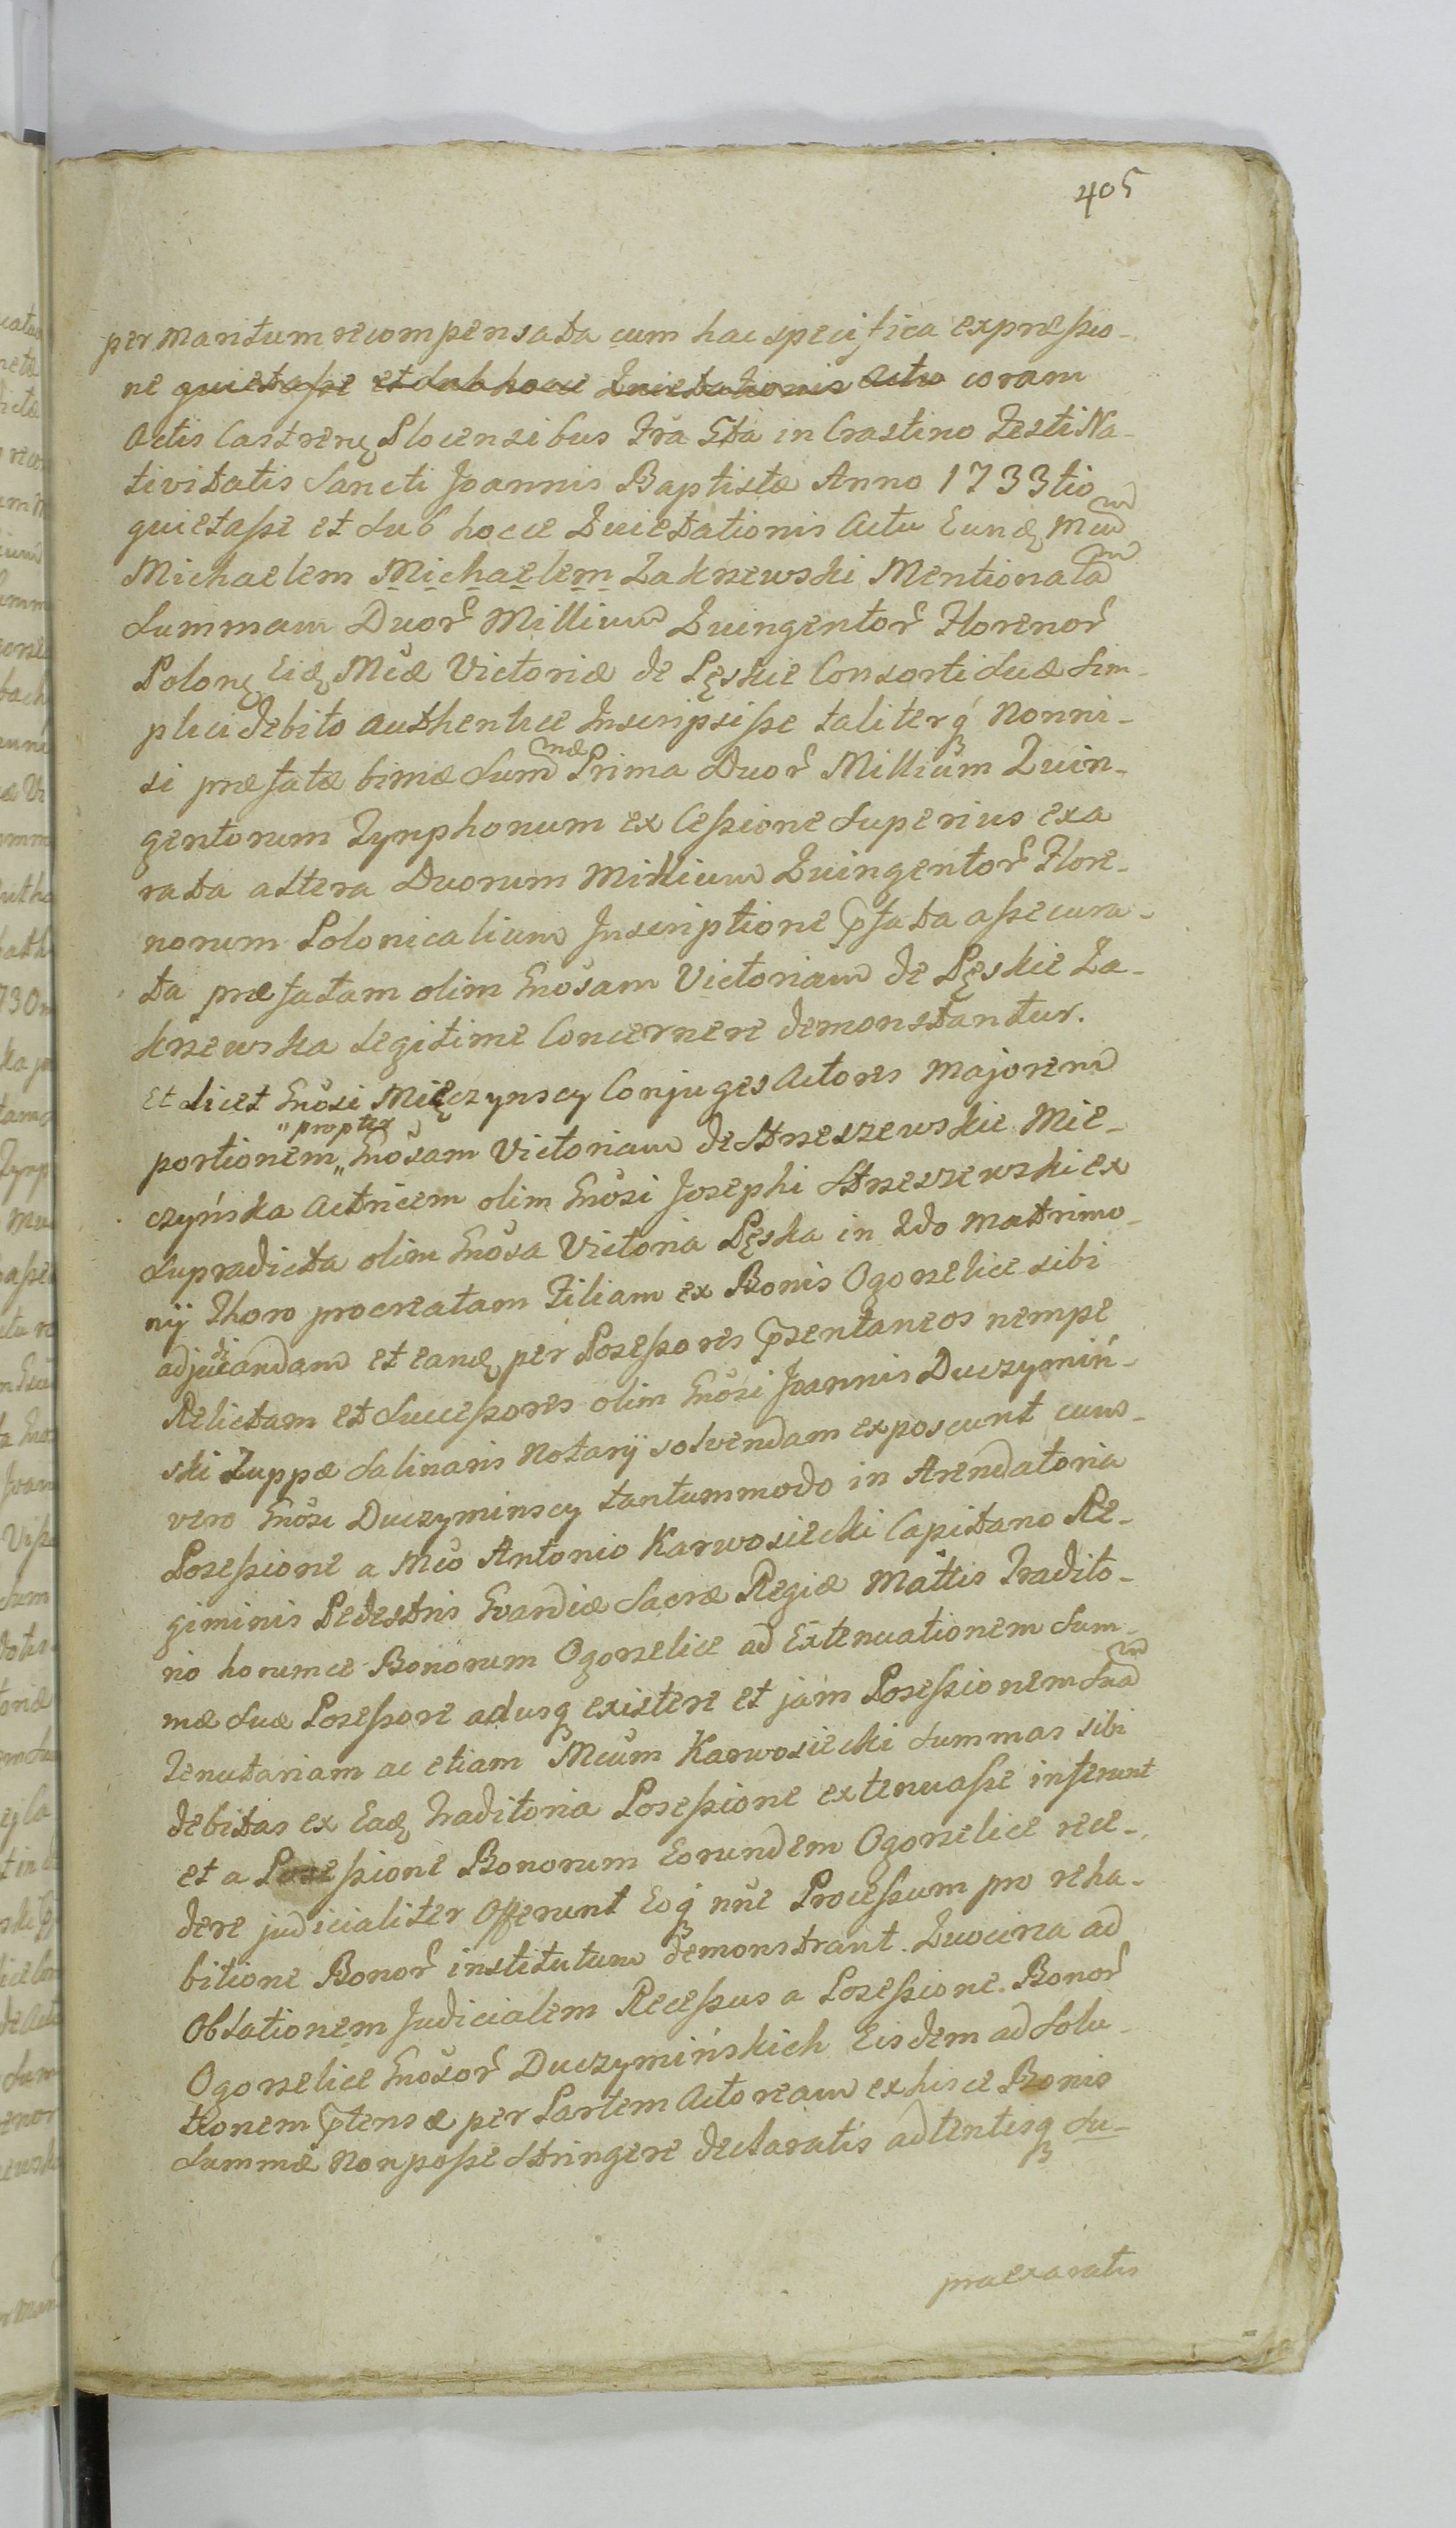 405
per maritum recompensata cum hac specifica expreßio-
ne quietaße et sub hocce Quietationis Actu coram
Actis Castren̄ Plocensibus Fr̃a 5ta in Crastino Festi Na-
tivitatis Sancti Joannis Baptistæ Anno 1733tio
quietaße et sub hocce Quietationis Actu Eund̃ Mcum
Michaelem Michaelem Zakrzewski Mentionatam
Summam Duor̃ Millium Quingentor̃ Florenor̃
Polon̄ Eid̃ Mcæ Victoriæ de Pęskie Consorti suæ sim-
plici debito authentice Inscripsiße taliterq́ Nonni-
si præfatæ binæ Summæ Prima Duor̃ Millium Quin-
gentorum Tynphonum ex Ceßione superius exa
rata altera Duorum Millium Quingentor̃ Flore-
norum Polonicalium Inscriptione p̃fata aßecura-
ta præfatam olim Gnösam Victoriam de Pęskie Za-
krzewska legitime Concernere demonstantur.
Et licet Gnösi Mięczynscy Conjuges Actores majorem
portionem " propter " Gnösam Victoriam de Strzeszewskie Mie-
czyńska Actricem olim Gnösi Josephi Strzeszewski ex
supradicta olim Gnösa Victoria Pęska in 2do matrimo-
nij Thoro procreatam Filiam ex Bonis Ogorzelice sibi
adjudicandam et eand̃ per Poseßores p̃zentaneos nempe
Relictam et Succeßores olim Gnösi Joannis Duczymiń-
ski Zuppæ Salinaris Notarij solvendam exposcunt cum
vero Gnösi Duczyminscy tantummodo in Arendatoria
Poseßione a Mco Antonio Karwosiecki Capitano Re-
giminis Pedestris Gvardiæ Sacræ Regiæ Mattis Tradito-
rio horumce Bonorum Ogorzelice ad Extenuationem Sum-
mæ suæ Poseßore adusq existere et jam Poseßionem suam
Tenutariam ac etiam Mcum Karwosiecki summas sibi
debitas ex Ead̃ Traditoria Poseßione extenuaße inferunt
et a Poseßione Bonorum Eorundem Ogorzelice rece-
dere judicialiter Offerunt Eoq́ nũe Proceßum pro reha-
bitione Bonor̃ institutum demonstrant. Quocirca ad
Oblationem Judicialem Receßus a Poseßione Bonor̃
Ogorzelice Gnösor̃ Duczymińskich Eisdem ad Solu-
tionem p̃tensæ per Partem Actoream ex hisce Bonis
Summæ Non poße stringere declaratis adtentisq Su-
praexaratis